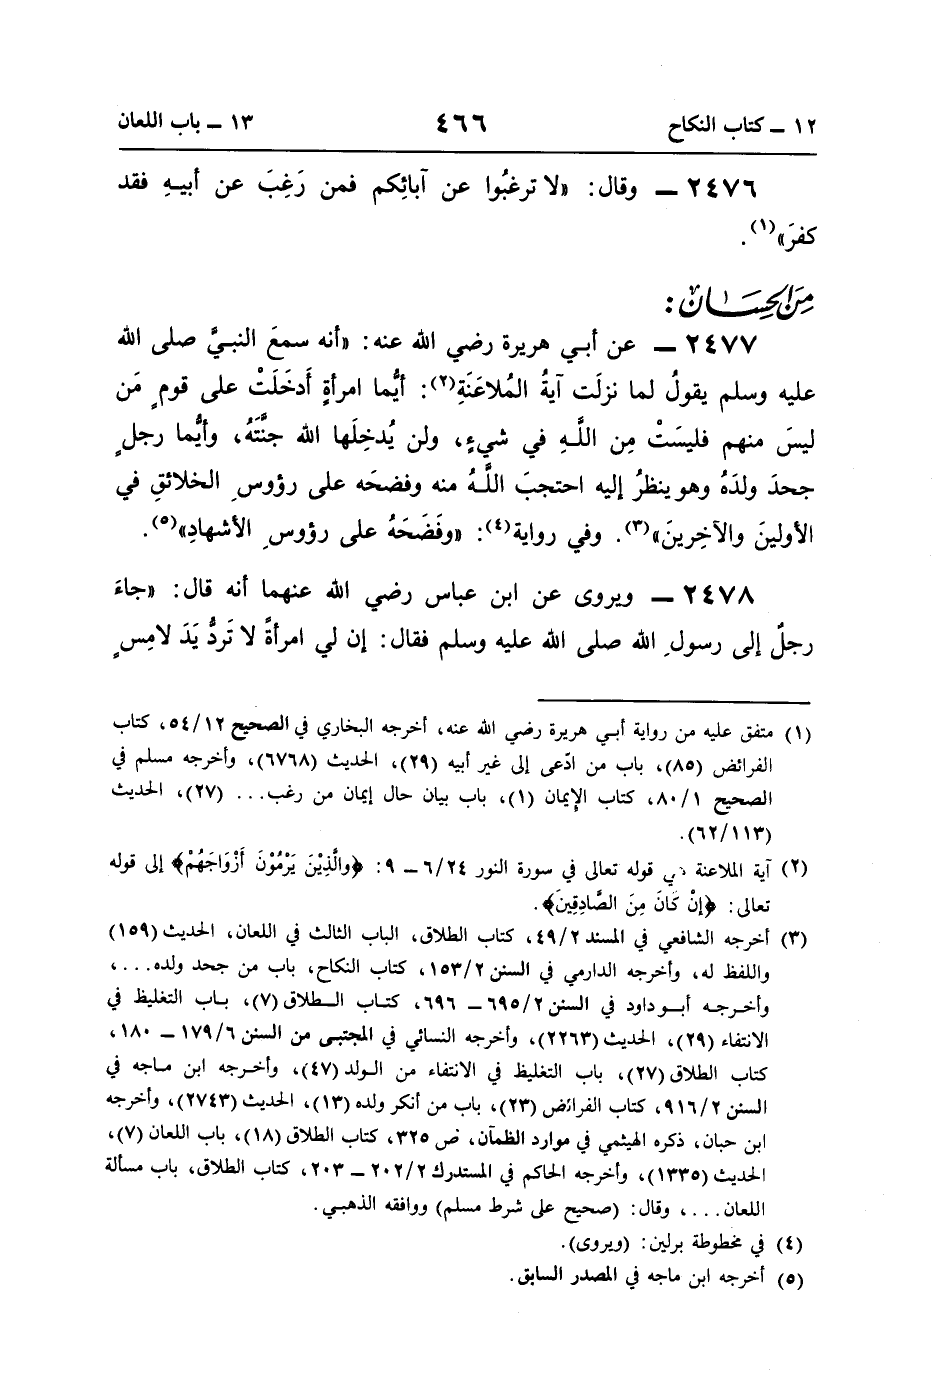 ١٢ ـ كتاب النكاح ٤٦٦ ١٣ ـ باب اللعان
٢٤٧٦ ـ وقال: «لا ترغبُوا عن آبائِكم فمن رَغِبَ عن أبيهِ فقد
كفرَ»(١).
مِنَ الحِسَان:
٢٤٧٧ ـ عن أبي هريرة رضي الله عنه: «أنه سمعَ النبيَّ صلى الله
عليه وسلم يقولُ لما نزلَت آيةُ المُلاعَنَةِ(٢): أيُّما امرأةٍ أَدخَلَتْ على قومٍ مَن
ليسَ منهم فليسَتْ مِن اللَّهِ في شيءٍ، ولن يُدخِلَها الله جنَّتَهُ، وأيُّما رجلٍ
جحدَ ولدَهُ وهو ينظرُ إليه احتجبَ اللَّهُ منه وفضحَه على رؤوسِ الخلائقِ في
الأولينَ والآخِرينَ»(٣). وفي رواية(٤): «وفَضَحَهُ على رؤوسِ الأشهادِ»(٥).
٢٤٧٨ ـ ويروى عن ابن عباس رضي الله عنهما أنه قال: «جاءَ
رجلٌ إلى رسولِ الله صلى الله عليه وسلم فقال: إن لي امرأةً لا تَردُّ يَدَ لامِسٍ
(١) متفق عليه من رواية أبي هريرة رضي الله عنه، أخرجه البخاري في الصحيح ٥٤/١٢، كتاب
الفرائض (٨٥)، باب من ادّعى إلى غير أبيه (٢٩)، الحديث (٦٧٦٨)، وأخرجه مسلم في
الصحيح ٨٠/١، كتاب الإيمان (١)، باب بيان حال إيمان من رغب... (٢٧)، الحديث
(٦٢/١١٣).
(٢) آية الملاعنة هي قوله تعالى في سورة النور ٦/٢٤ ـ ٩: ﴿والَّذِيْنَ يَرْمُوْنَ أَزْوَاجَهُمْ﴾ إلى قوله
تعالى: ﴿إنْ كَانَ مِنَ الصَّادِقِينَ﴾.
(٣) أخرجه الشافعي في المسند ٤٩/٢، كتاب الطلاق، الباب الثالث في اللعان، الحديث (١٥٩)
واللفظ له، وأخرجه الدارمي في السنن ١٥٣/٢، كتاب النكاح، باب من جحد ولده...،
وأخرجه أبو داود في السنن ٦٩٥/٢ ـ ٦٩٦، كتاب الطلاق (٧)، باب التغليظ في
الانتفاء (٢٩)، الحديث (٢٢٦٣)، وأخرجه النسائي في المجتبى من السنن ١٧٩/٦ ـ ١٨٠،
كتاب الطلاق (٢٧)، باب التغليظ في الانتفاء من الولد (٤٧)، وأخرجه ابن ماجه في
السنن ٩١٦/٢، كتاب الفرائض (٢٣)، باب من أنكر ولده (١٣)، الحديث (٢٧٤٣)، وأخرجه
ابن حبان، ذكره الهيثمي في موارد الظمآن، ص ٣٢٥، كتاب الطلاق (١٨)، باب اللعان (٧)،
الحديث (١٣٣٥)، وأخرجه الحاكم في المستدرك ٢٠٢/٢ ـ ٢٠٣، كتاب الطلاق، باب مسألة
اللعان...، وقال: (صحيح على شرط مسلم) ووافقه الذهبي.
(٤) في مخطوطة برلين: (ويروى).
(٥) أخرجه ابن ماجه في المصدر السابق.